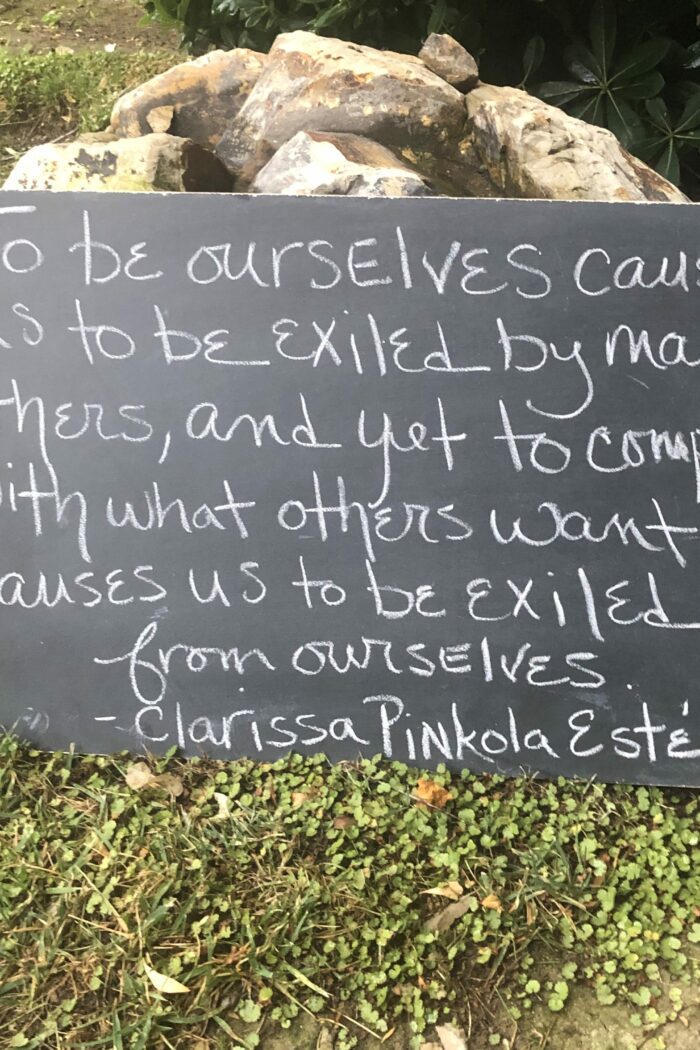 To be ourselves caus
us to be exiled by ma
thers, and yet to comp
with what others want
auses us to be exiled
from ourselves.
- Clarissa Pinkola Esté